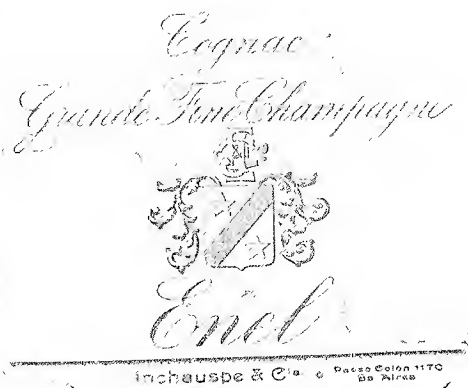 Cognac
Grande Fine Champagne
Enol
Inchauspe & Cia. Paseo Colon 1170
Bs Aires